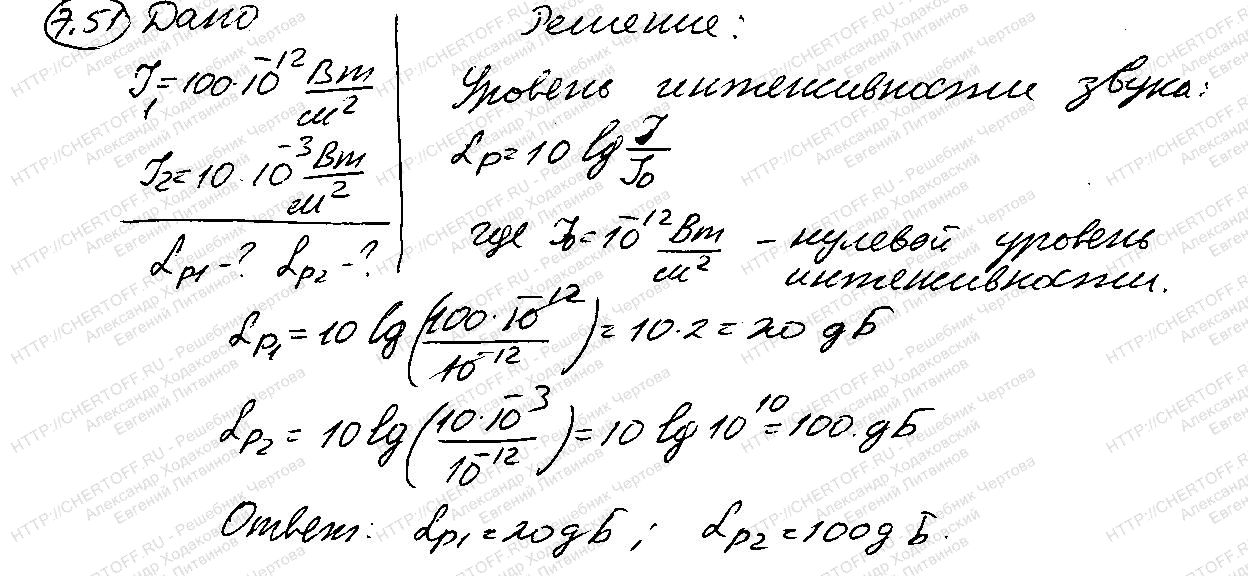 7.51 Дано
I₁=100·10⁻¹² Вт/м²
I₂=10·10⁻³ Вт/м²
Lp₁-? Lp₂-?
Решение:
Уровень интенсивности звука:
Lp=10 lg I/I₀
где I₀=10⁻¹² Вт/м² - нулевой уровень
интенсивности.
Lp₁=10 lg(100·10⁻¹²/10⁻¹²)=10·2=20 дБ
Lp₂=10 lg(10·10⁻³/10⁻¹²)=10 lg 10¹⁰=100.дБ
Ответ: Lp₁=20дБ; Lp₂=100дБ.
HTTP://CHERTOFF.RU - Решебник Чертова
Александр Ходаковский
Евгений Литвинов